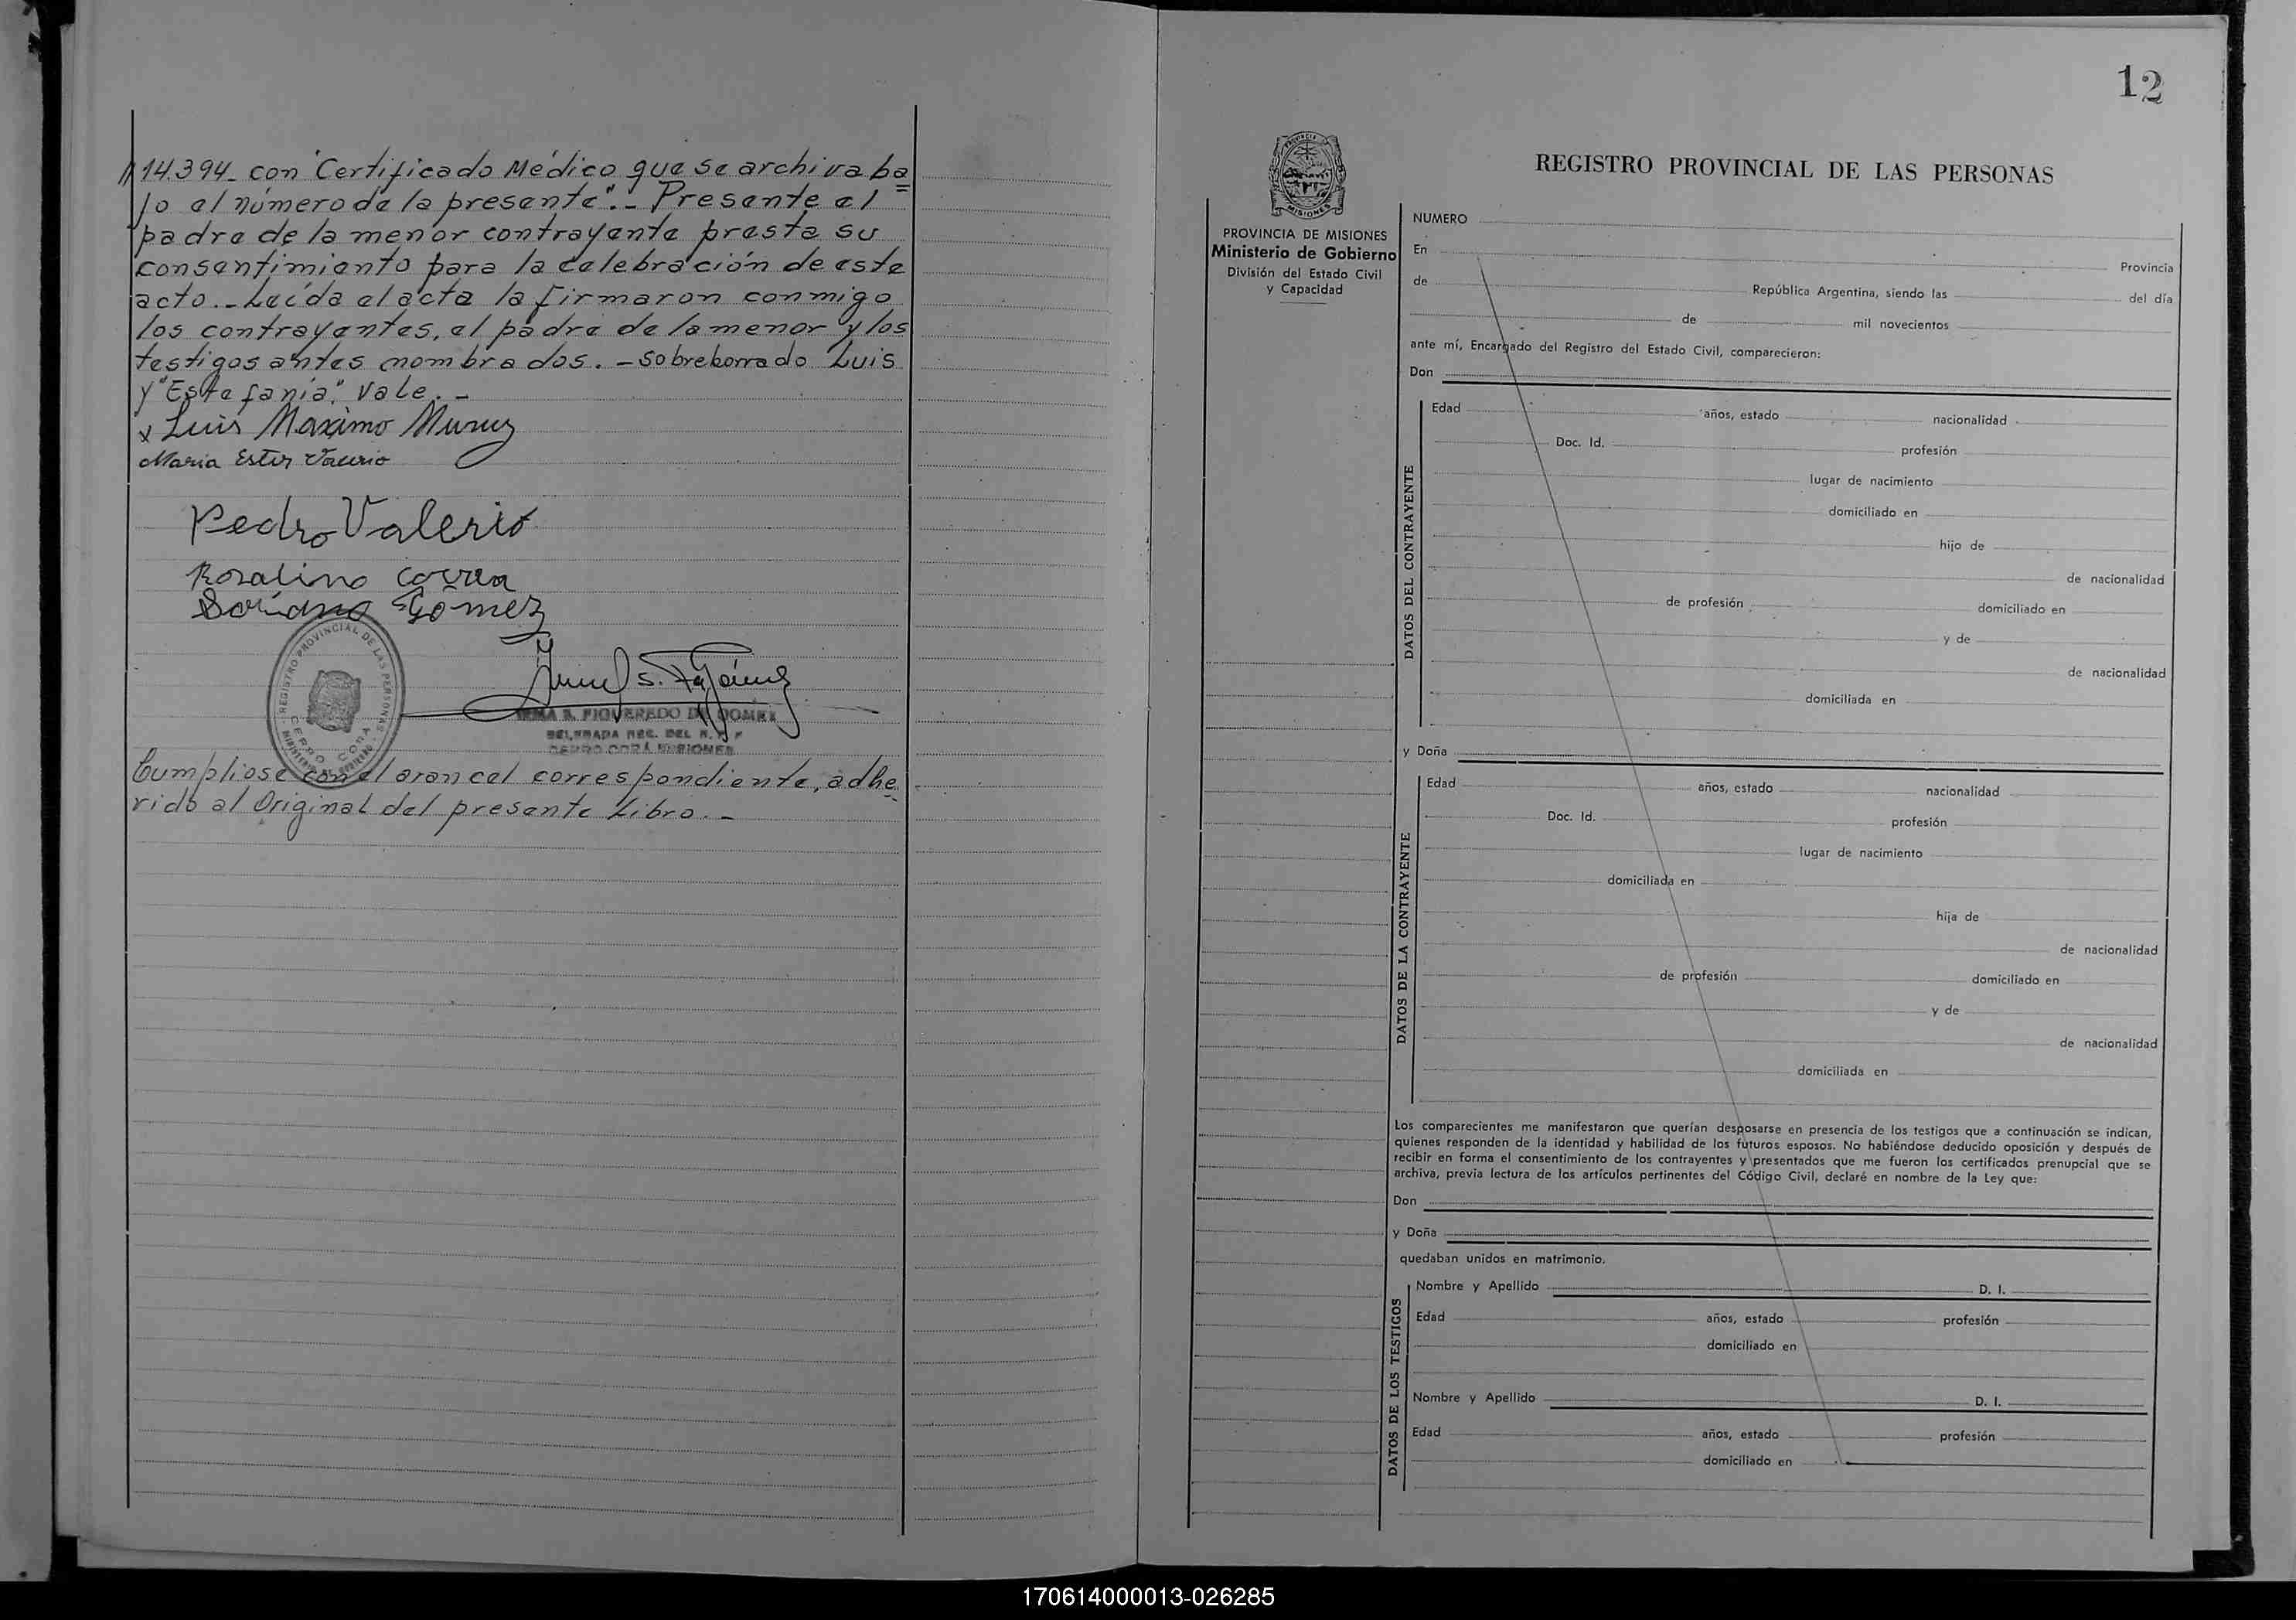 14.394_ con "Certificado Médico que se archiva ba=
jo el número de la presente".- Presente el
padre de la menor contrayente presta su
consentimiento para la celebración de este
acto.- Leída el acta la firmaron conmigo
los contrayentes, el padre de la menor y los
testigos antes nombrados. - sobreborrado Luis
y "Estefanía", Vale. -
x Luis Maximo Muruz
Maria Ester Valerio
Pedro Valerio
Rosalino correa
Gomez
REGISTRO PROVINCIAL DE LAS PERSONAS
CERRO CORA
FIGUEREDO DE GOMEZ
CERRO CORÁ MISIONES
Cumpliose con el arancel correspondiente, adhe=
rido al Original del presente Libro. -
12
PROVINCIA
MISIONES
PROVINCIA DE MISIONES
Ministerio de Gobierno
División del Estado Civil
y Capacidad
REGISTRO PROVINCIAL DE LAS PERSONAS
NUMERO
En Provincia
de República Argentina, siendo las del día
de mil novecientos
ante mí, Encargado del Registro del Estado Civil, comparecieron:
Don
DATOS DEL CONTRAYENTE
Edad años, estado nacionalidad
Doc. Id. profesión
lugar de nacimiento
domiciliado en
hijo de
de nacionalidad
de profesión domiciliado en
y de
de nacionalidad
domiciliada en
y Doña
DATOS DE LA CONTRAYENTE
Edad años, estado nacionalidad
Doc. Id. profesión
lugar de nacimiento
domiciliada en
hija de
de nacionalidad
de profesión domiciliado en
y de
de nacionalidad
domiciliada en
Los comparecientes me manifestaron que querían desposarse en presencia de los testigos que a continuación se indican,
quienes responden de la identidad y habilidad de los futuros esposos. No habiéndose deducido oposición y después de
recibir en forma el consentimiento de los contrayentes y presentados que me fueron los certificados prenupcial que se
archiva, previa lectura de los artículos pertinentes del Código Civil, declaré en nombre de la Ley que:
Don
y Doña
quedaban unidos en matrimonio.
DATOS DE LOS TESTIGOS
Nombre y Apellido D. I.
Edad años, estado profesión
domiciliado en
Nombre y Apellido D. I.
Edad años, estado profesión
domiciliado en
170614000013-026285